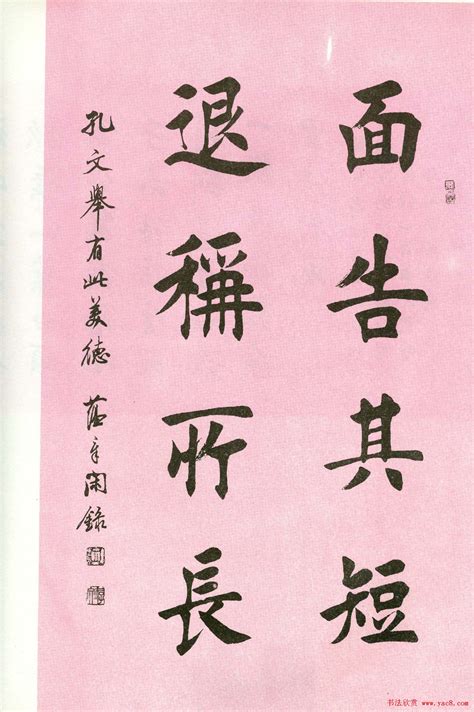 面告其短
退稱所長
孔文舉有此美德
閑錄
书法欣赏 www.yac8.com